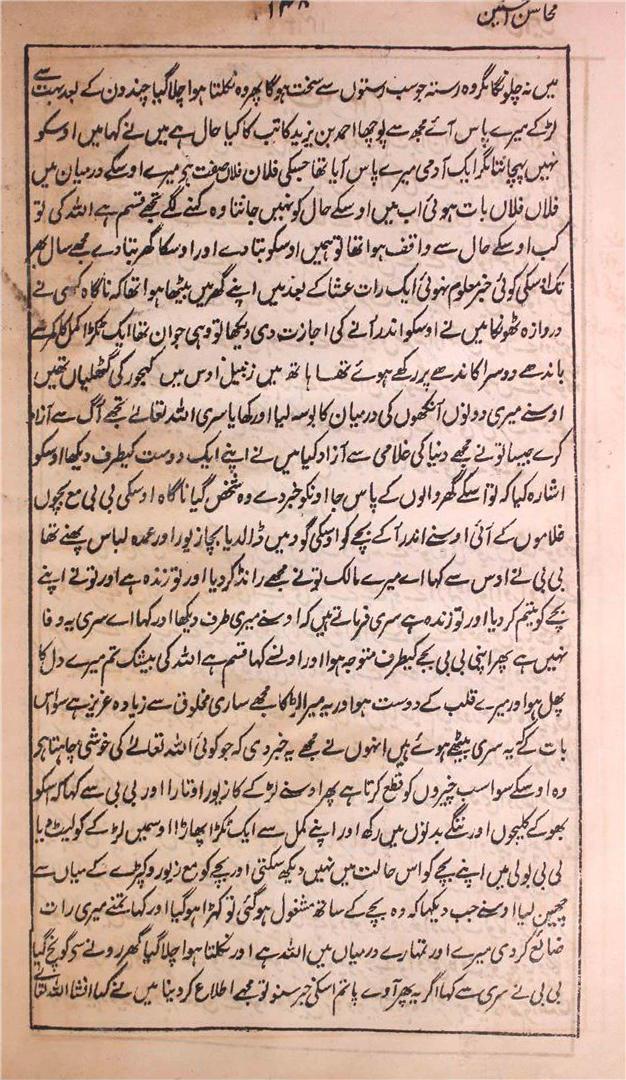 محاسن الحسنین
۱۳۸
میں نہ چلونگا مگر وہ رستہ جو سب رستوں سے سخت ہوگا پھر وہ نکلتا ہوا چلا گیا چند دن کے بعد بہت سے
لڑکے میرے پاس آئے مجھ سے پوچھا احمد بن یزید کاتب کا کیا حال ہے میں نے کہا میں اوسکو
نہیں پہچانتا مگر ایک آدمی میرے پاس آیا تھا جسکی فلان فلان صفت ہے میرے اوسکے درمیان میں
فلاں فلاں بات ہوئی اب میں اوسکے حال کو نہیں جانتا وہ کہنے لگے تجھے قسم ہے اللہ کی تو
کب اوسکے حال سے واقف ہوا تھا تو ہمیں اوسکو بتا دے اور اوسکا گھر بتا دے مجھے سال بھر
تک اوسکی کوئی خبر معلوم نہوئی ایک رات عشا کے بعد میں اپنے گھر میں بیٹھا ہوا تھا کہ ناگاہ کسی نے
دروازہ ٹھونکا میں نے اوسکو اندر آنے کی اجازت دی دیکھا تو وہی جوان تھا ایک ٹکڑا کمل کا کمر سے
باندھے دوسرا کاندھے پر رکھے ہوئے تھا ہاتھ میں زنبیل اوس میں کھجور کی گٹھلیاں تھیں
اوسنے میری دونوں آنکھوں کی درمیان کا بوسہ لیا اور کہا یا سری اللہ تعالے تجھے آگ سے آزاد
کرے جیسا تو نے مجھے دنیا کی غلامی سے آزاد کیا میں نے اپنے ایک دوست کیطرف دیکھا اوسکو
اشارہ کیا کہ تو اسکے گھر والوں کے پاس جا اونکو خبر دے وہ شخص گیا ناگاہ اوسکی بی بی مع بچوں
غلاموں کے آئی اوسنے اندر آکے بچے کو اوسکی گود میں ڈالدیا بچا زیور اور عمدہ لباس پہنے تھا
بی بی نے اوس سے کہا اے میرے مالک تو نے مجھے رانڈ کر دیا اور تو زندہ ہے اور تو نے اپنے
بچے کو یتیم کر دیا اور تو زندہ ہے سری فرماتے ہیں کہ اوسنے میری طرف دیکھا اور کہا اے سری یہ وفا
نہیں ہے پھر اپنی بی بی بچے کیطرف متوجہ ہوا اور اونسے کہا قسم ہے اللہ کی بیشک تم میرے دل کا
پھل ہو اور میرے قلب کے دوست ہو اور یہ میرا لڑکا مجھے ساری مخلوق سے زیادہ عزیز ہے سو اس
بات کے یہ سری بیٹھے ہوئے ہیں انہوں نے مجھے یہ خبر دی کہ جو کوئی اللہ تعالے کی خوشی چاہتا ہے
وہ اوسکے سوا سب چیزوں کو قطع کرتا ہے پھر اوسنے لڑکے کا زیور اوتارا اور بی بی سے کہا کہ اسکو
بھوکے کلیجوں اور ننگے بدنوں میں رکھ اور اپنے کمل سے ایک ٹکڑا پھاڑا اوسمیں لڑکے کو لپیٹ دیا
بی بی بولی میں اپنے بچے کو اس حالت میں نہیں دیکھ سکتی اور بچے کو مع زیور و کپڑے کے میاں سے
چھین لیا اوسنے جب دیکھا کہ وہ بچے کے ساتھ مشغول ہو گئی تو کھڑا ہو گیا اور کہا تمنے میری رات
ضائع کر دی میرے اور تمہارے درمیاں میں اللہ ہے اور نکلتا ہوا چلا گیا گھر رونے سے گونج گیا
بی بی نے سری سے کہا اگر یہ پھر آوے یا تم اسکی خبر سنو تو مجھے اطلاع کر دینا میں نے کہا انشا اللہ تعالے